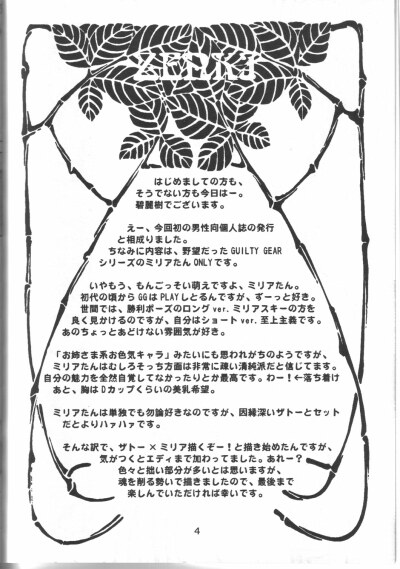 ZEKKI
はじめましての方も、
そうでない方も今日はー。
碧麗樹でございます。
えー、今回初の男性向個人誌の発行
と相成りました。
ちなみに内容は、野望だったGUILTY GEAR
シリーズのミリアたんONLYです。
いやもう、もんごっそい萌えですよ、ミリアたん。
初代の頃からGGはPLAYしとるんですが、ずーっと好き。
世間では、勝利ポーズのロングver.ミリアスキーの方を
良く見かけるのですが、自分はショートver.至上主義です。
あのちょっとあどけない雰囲気が好き。
「お姉さま系お色気キャラ」みたいにも思われがちのようですが、
ミリアたんはむしろそっち方面は非常に疎い清純派だと信じてます。
自分の魅力を全然自覚してなかったりとか最高です。わー!←落ち着け
あと、胸はDカップくらいの美乳希望。
ミリアたんは単独でも勿論好きなのですが、因縁深いザトーとセット
だとよりハァハァです。
そんな訳で、ザトー×ミリア描くぞー!と描き始めたんですが、
気がつくとエディまで加わってました。あれー?
色々と拙い部分が多いとは思いますが、
魂を削る勢いで描きましたので、最後まで
楽しんでいただければ幸いです。
4